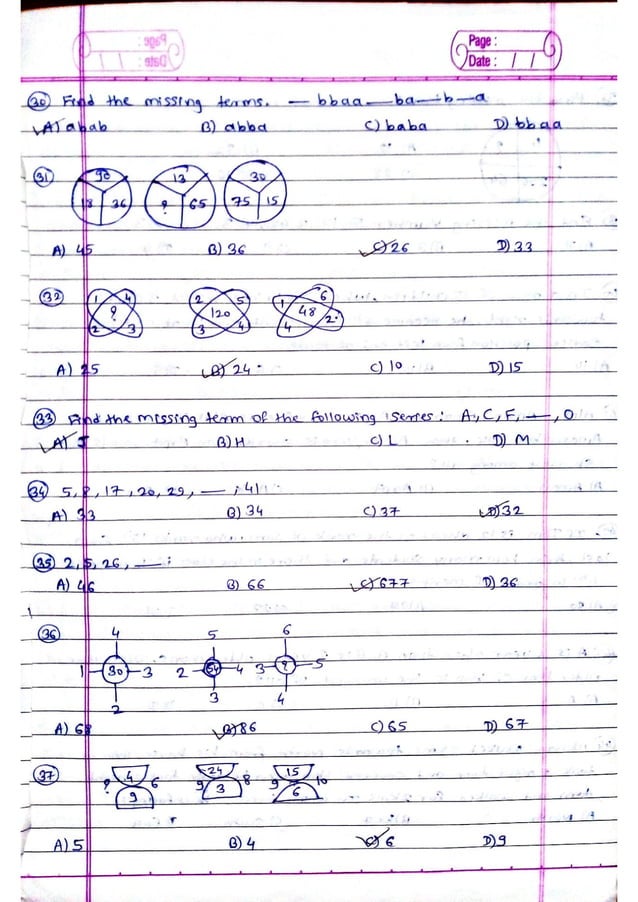 Page :
Date : / /
30 Find the missing terms. — bbaa — ba — b — a
A) abab B) abba C) baba D) bbaa
31 90 18 36 13 ? 65 30 75 15
A) 45 B) 36 C) 26 D) 33
32 1 4 ? 2 3 2 5 120 3 4 1 6 48 4 2
A) 25 B) 24 C) 10 D) 15
33 Find the missing term of the following series : A, C, F, —, O
A) J B) H C) L D) M
34 5, 8, 17, 20, 29, — , 41
A) 33 B) 34 C) 37 D) 32
35 2, 5, 26, —
A) 46 B) 66 C) 677 D) 36
36 4 5 6
1 30 3 2 54 4 3 ? 5
2 3 4
A) 68 B) 86 C) 65 D) 67
37 4 24 15
? 6 9 8 9 10
9 3 6
A) 5 B) 4 C) 6 D) 9